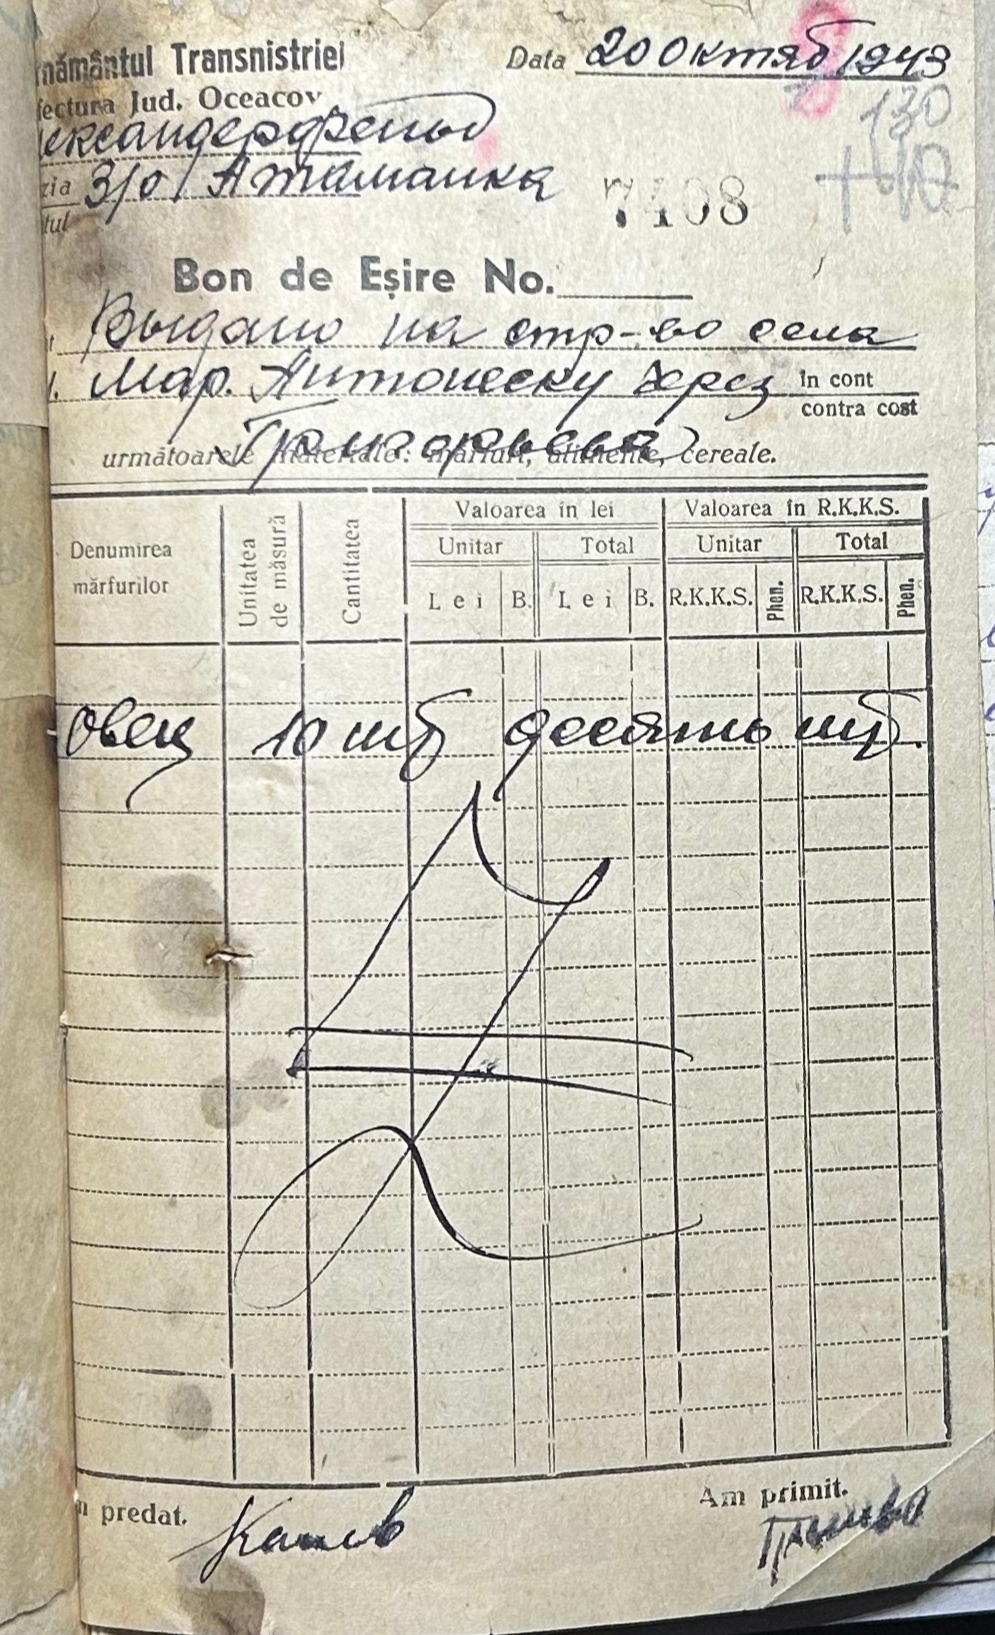 nământul Transnistriei
Data 20 Октяб 1943
fectura Jud. Oceacov
ександерфельд
130
zia З/О Атаманка
7408
tul
Bon de Eșire No.
Выдано на стр-во села
Мар. Антонеску через în cont
contra cost
Григорьева
următoarele materiale: mărfuri, alimente, cereale.
Denumirea mărfurilor
Unitatea de măsură
Cantitatea
Valoarea în lei
Valoarea în R.K.K.S.
Unitar Total Unitar Total
Lei B. Lei B. R.K.K.S. Phen. R.K.K.S. Phen.
Овец 10 шт десять шт.
predat.
Am primit.